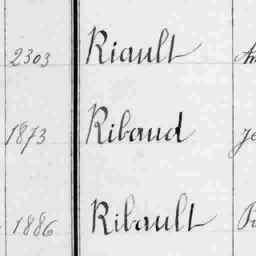 2303 Riault
1873 Ribaud
1886 Ribault